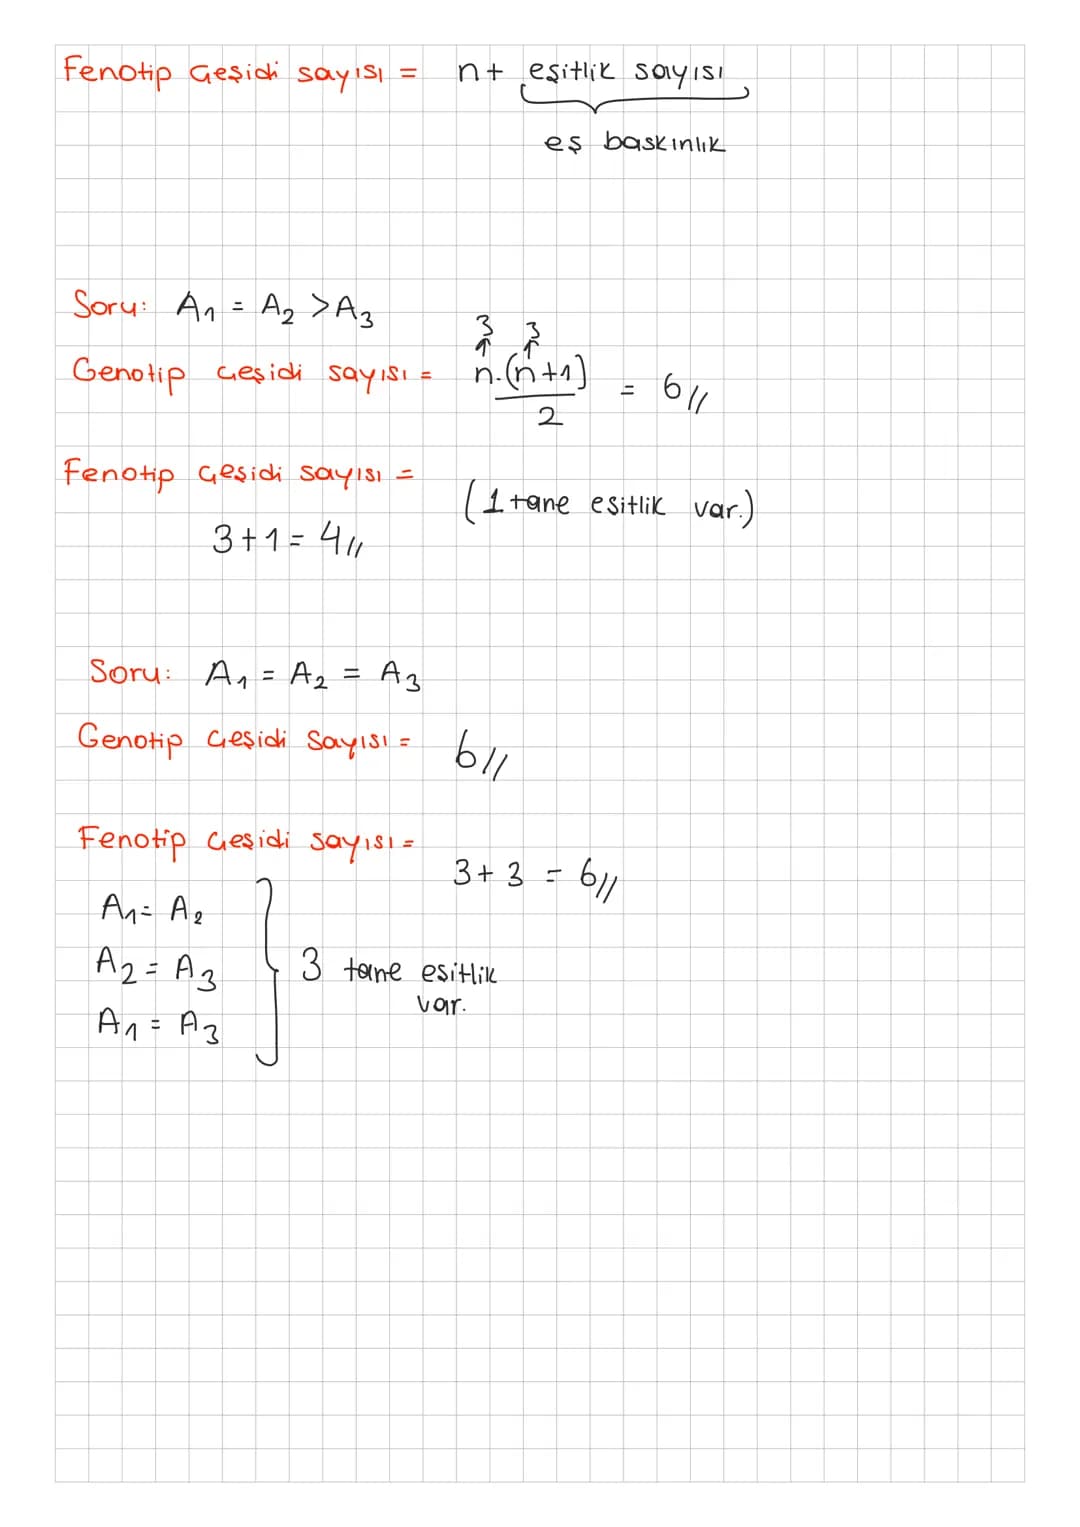 Fenotip Çeşidi sayısı = n + eşitlik sayısı
eş baskınlık
Soru: A₁ = A₂ > A₃
3 3
Genotip çeşidi sayısı = n.(n+1) = 6//
2
Fenotip çeşidi sayısı =
(1 tane eşitlik var.)
3+1 = 4//
Soru: A₁ = A₂ = A₃
Genotip Çeşidi Sayısı = 6//
Fenotip Çeşidi sayısı =
3+3 = 6//
A₁ = A₂
A₂ = A₃
3 tane esitlik
var.
A₁ = A₃